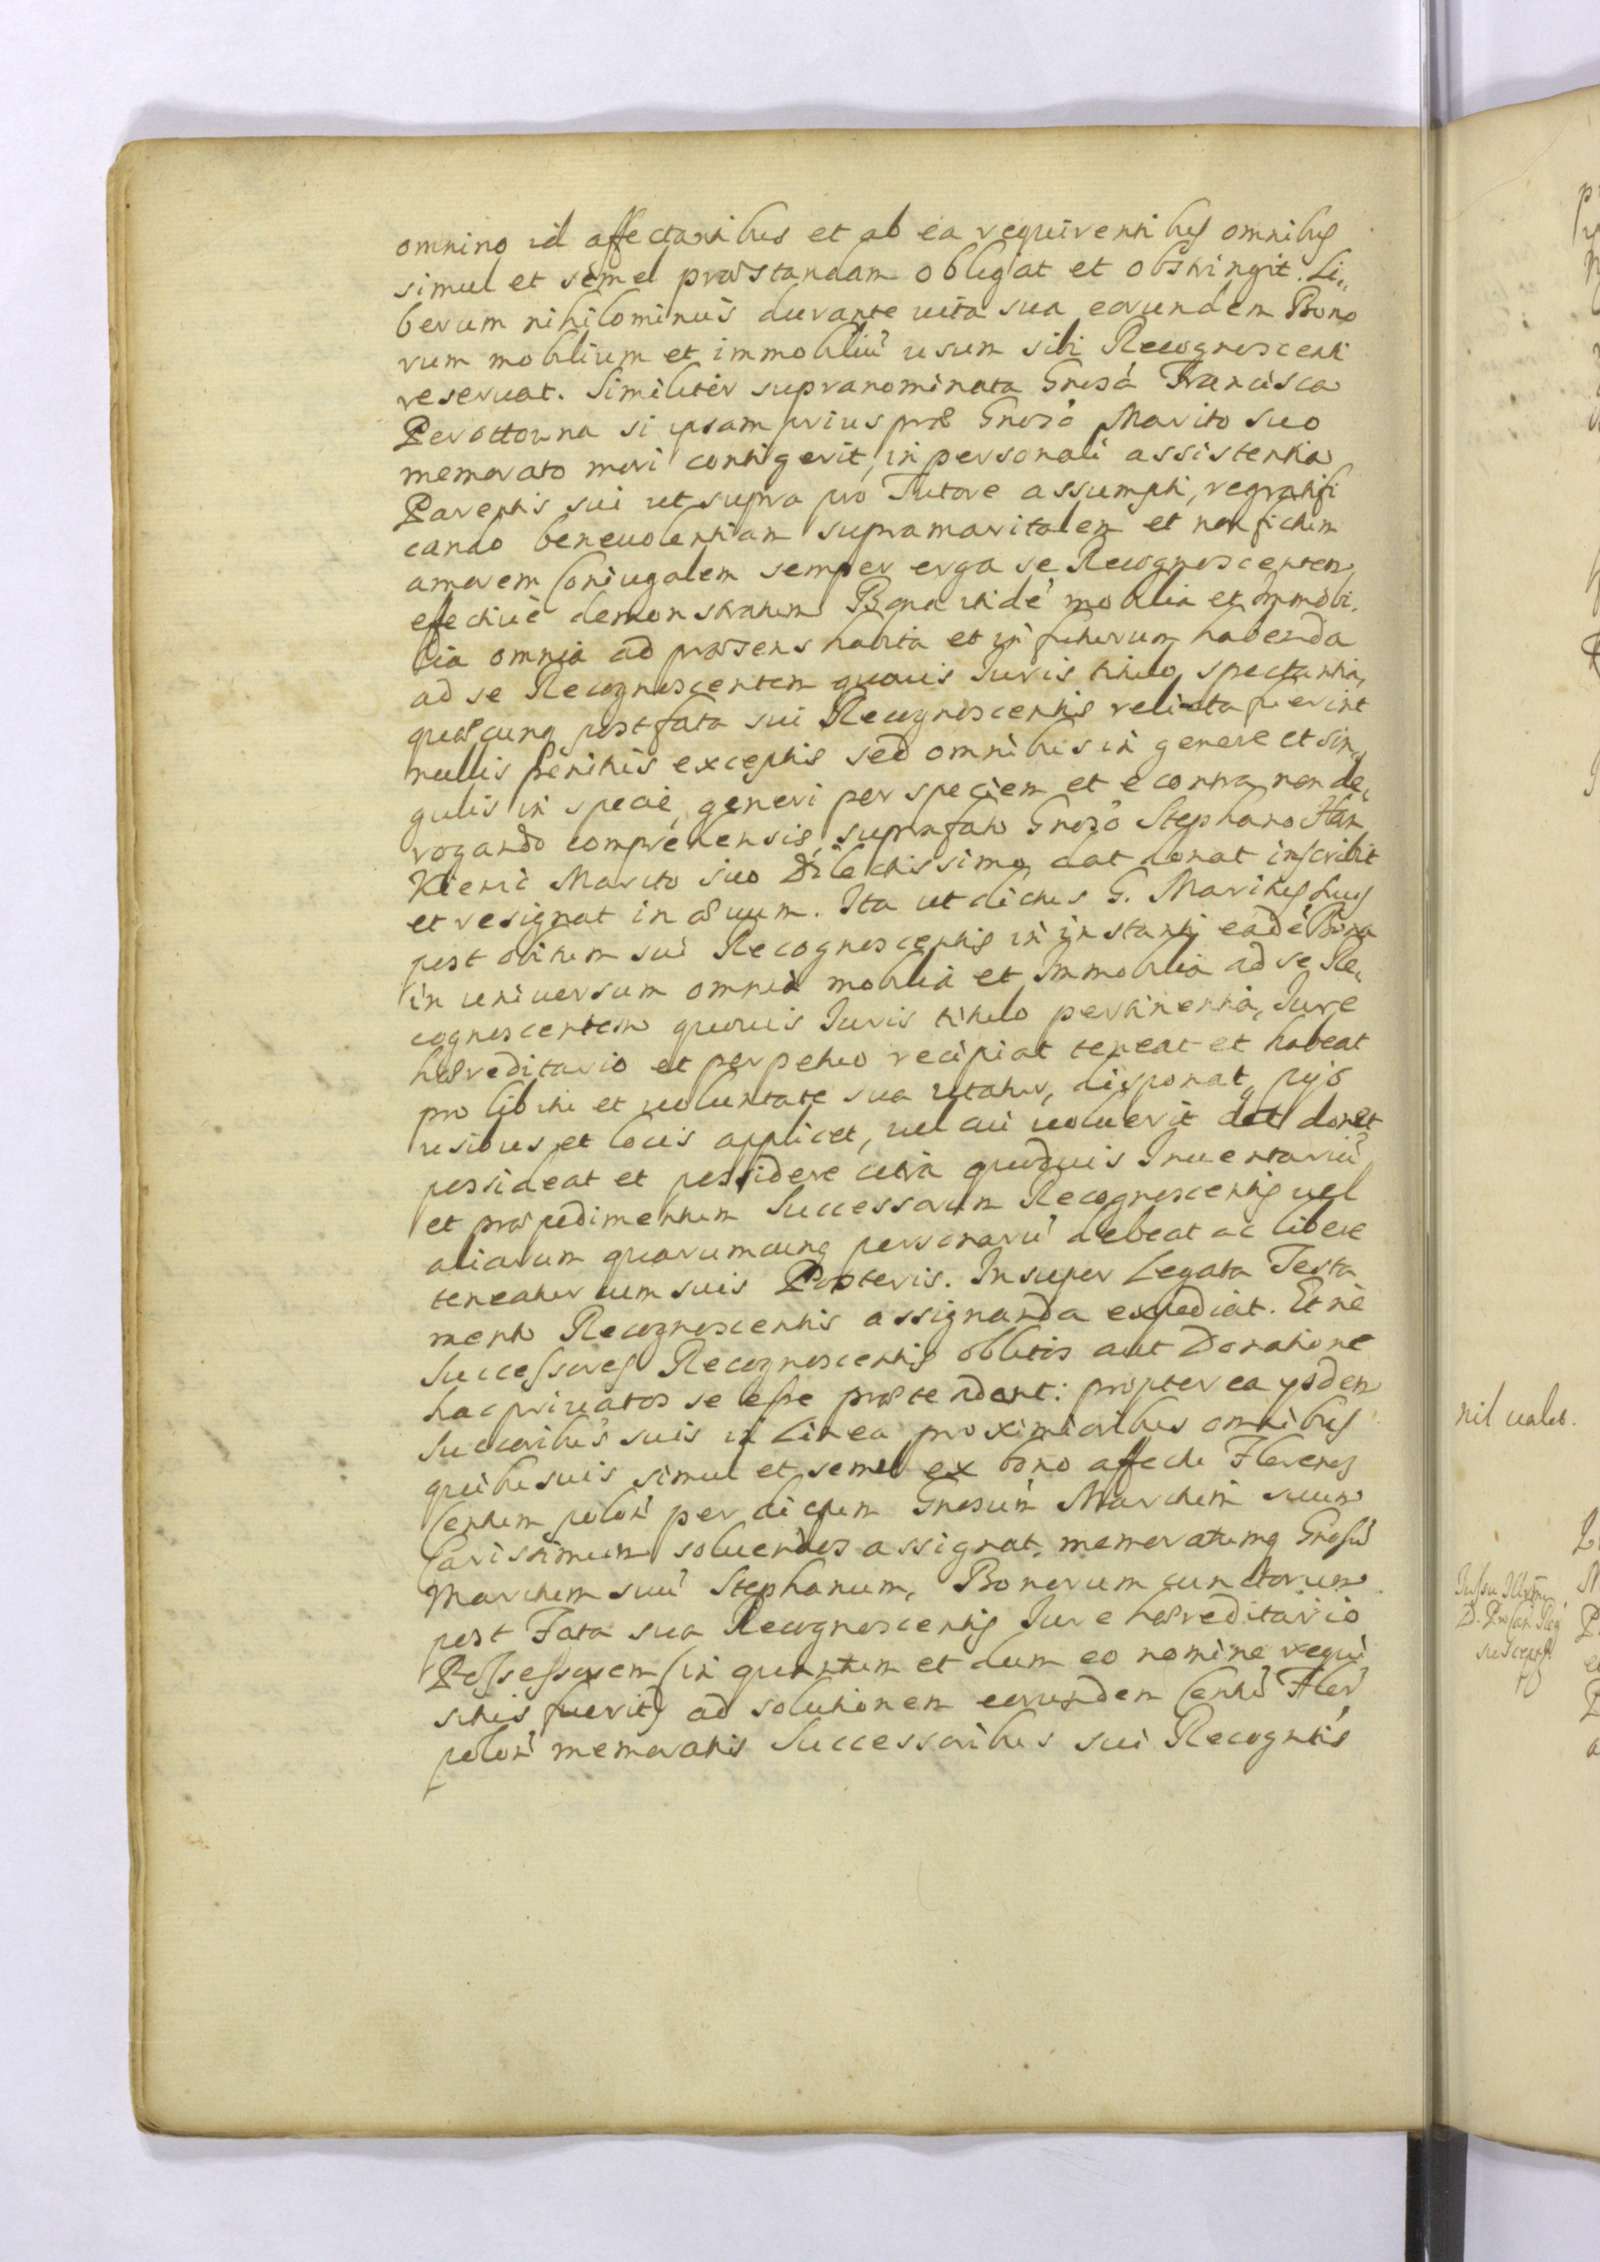 omnino id affectantibus et ab ea requirentibus omnibus
simul et semel præstandam obligat et obstringit. Li„
berum nihilominus durante uita sua eorundem Bono
rum mobilium et immobiliū usum sibi Recognoscenti
reseruat. Similiter supranominata Gnosa Francisca
Perottowna si ipsam prius præ Gnoso Marito suo
memorato mori contigerit, in personali assistentia
Parentis sui ut supra pro Tutore assumpti, regratifi
cando beneuolentiam supramaritalem et non fictum
amorem Coniugalem semper erga se Recognoscentem
effectiuè demonstratum Bona itidē mobilia et Immobi„
lia omnia ad præsens habita et in futurum habenda
ad se Recognoscentem quouis Juris titulo spectantia,
quæcunq post fata sui Recognoscentis relicta fuerint
nullis penitus exceptis sed omnibus in genere et sin„
gulis in specie, generi per speciem et e contra non de„
rogando comprehensis, suprafato Gnoso Stephano Han
Kieuic Marito suo Dilectissimo dat donat inscribit
et resignat in æuum. Ita ut dictus G. Maritus suus
post obitum sui Recognoscentis in instanti eadē Bona
in uniuersum omnia mobilia et Immobilia ad se Re„
cognoscentem quouis Juris titulo pertinentia, Jure
hæreditario et perpetuo recipiat teneat et habeat
pro libitu et uoluntate sua utatur, disponat, pijs
usibus et locis applicet, uel cui uoluerit det donet
possideat et possidere citra quoduis Inuentariū
et præpedimentum Successorum Recognoscentis uel
aliarum quarumcunq personarū debeat ac libere
teneatur cum suis Posteris. Insuper Legata Testa
mento Recognoscentis assignanda expediat. Et ne
Successores Recognoscentis oblitos aut Donatione
hac priuatos se esse prætendant: propterea ysdem
Succoribus suis in linea proximioribus omnibus
quibusuis simul et semel ex bono affectu Florenos
Centum polon̄ per dictum Gnosum Maritum suum
Carissimum soluendos assignat, memoratumq Gnosū
Maritum suū Stephanum, Bonorum cunctorum
post Fata sua Recognoscentis Jure hæreditario
Possessorem (in quantum et dum eo nomine requi
situs fuerit) ad solutionem eorundem Centū Flor̄
polon̄ memoratis Successoribus sui Recogntis
nil ualet.
Jussu Illrmi